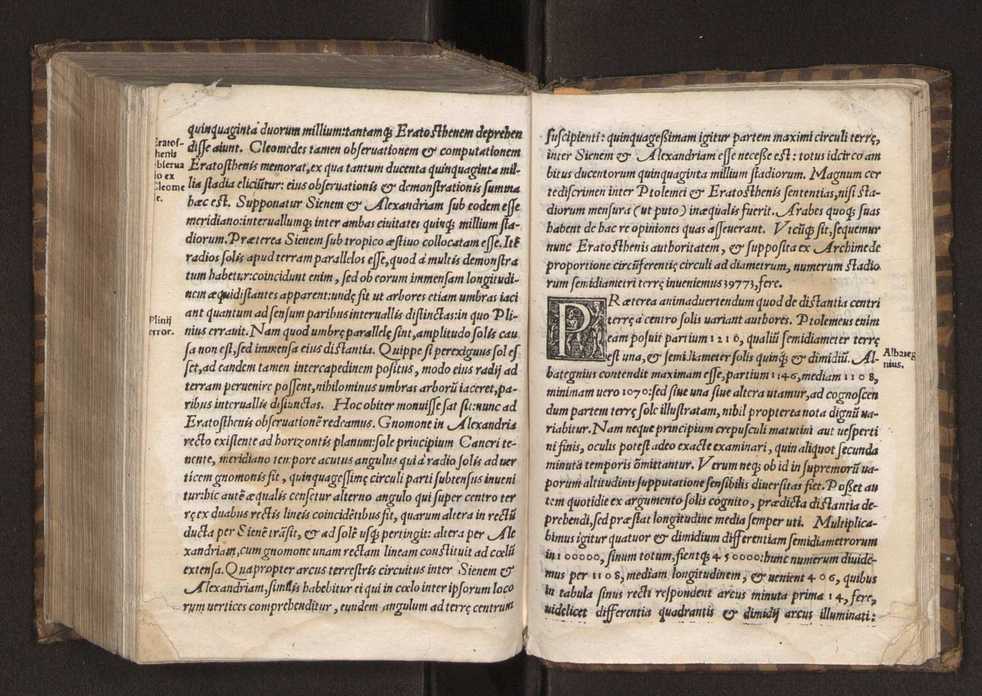 quinquaginta duorum millium: tantamq́; Eratosthenem deprehen
disse aiunt. Cleomedes tamen observationem & computationem
Eratosthenis memorat, ex qua tantum ducenta quinquaginta mil-
lia stadia eliciũtur: eius observationis & demonstrationis summa
hæc est. Supponatur Sienem & Alexandriam sub eodem esse
meridiano: intervallumq́; inter ambas civitates quinq́; millium sta-
diorum. Præterea Sienem sub tropico æstivo collocatam esse. Itẽ
radios solis apud terram parallelos esse, quod à multis demonstra
tum habetur: coincidunt enim, sed ob eorum immensam longitudi-
nem æquidistantes apparent: undę fit ut arbores etiam umbras iaci
ant quantum ad sensum paribus intervallis distinctas: in quo Pli-
nius erravit. Nam quod umbrę parallelę sint, amplitudo solis cau
sa non est, sed immensa eius distantia. Quippe si perexiguus sol es
set, ad eandem tamen intercapedinem positus, modo eius radij ad
terram pervenire possent, nihilominus umbras arborũ iaceret, pa-
ribus intervallis disiunctas. Hoc obiter monuisse sat sit: nunc ad
Eratosthenis observationẽ redeamus. Gnomone in Alexandria
recto existente ad horizontis planum: sole principium Cancri te-
nente, meridiano tempore acutus angulus qui à radio solis ad ver
ticem gnomonis fit, quinquagessimę circuli parti subtensus inveni
tur: hic autẽ æqualis censetur alterno angulo qui super centro ter
rę ex duabus rectis lineis coincidẽtibus fit, quarum altera in rectũ
ducta per Sienẽ trãsit, & ad solẽ usq́; pertingit: altera per Ale
xandriam, cum gnomone unam rectam lineam constituit ad cœlũ
extensa. Quapropter arcus terrestris circuitus inter Sienem &
Alexandriam, similis habebitur ei qui in cœlo inter ipsorum loco
rum vertices comprehenditur, eundem angulum ad terrę centrum
Eratos-
thenis
observa
io ex
Cleome
e.
Plinij
error.
suscipienti: quinquagesimam igitur partem maximi circuli terrę,
inter Sienem & Alexandriam esse necesse est: totus idcirco am
bitus ducentorum quinquaginta millium stadiorum. Magnum cer
te discrimen inter Ptolemei & Eratosthenis sententias, nisi sta-
diorum mensura (ut puto) inæqualis fuerit. Arabes quoq́; suas
habent de hac re opiniones quas asseverant. Vicũq́; sit, sequemur
nunc Eratosthenis authoritatem, & supposita ex Archimede
proportione circũferentię circuli ad diametrum, numerum stadio
rum semidiametri terrę inveniemus 39773, fere.
PRæterea animadvertendum quod de distantia centri
terrę à centro solis variant authores. Ptolemeus enim
eam posuit partium 1216, qualiũ semidiameter terrę
est una, & semidiameter solis quinq́; & dimidiũ. Al-
bategnius contendit maximam esse, partium 1146, mediam 1108,
minimam vero 1070: sed sive una sive altera utamur, ad cognoscen
dum partem terrę sole illustratam, nihil propterea nota dignũ va-
riabitur. Nam neque principium crepusculi matutini aut vesperti
ni finis, oculis potest adeo exacte examinari, quin aliquot secunda
minuta temporis õmittantur. Verum neq́; ob id in supremorũ va-
porum altitudinis supputatione sensibilis diversitas fiet. Posset au
tem quotidie ex argumento solis cognito, prædicta distantia de-
prehendi, sed præstat longitudine media semper uti. Multiplica-
bimus igitur quatuor & dimidium differentiam semidiametrorum
in 100000, sinum totum, fientq́; 450000: hunc numerum divide-
mus per 1108, mediam longitudinem, & venient 406, quibus
in tabula sinus recti respondent arcus minuta prima 14, fere,
videlicet differentia quadrantis & dimidij arcus illuminati:
Albateg
nius.